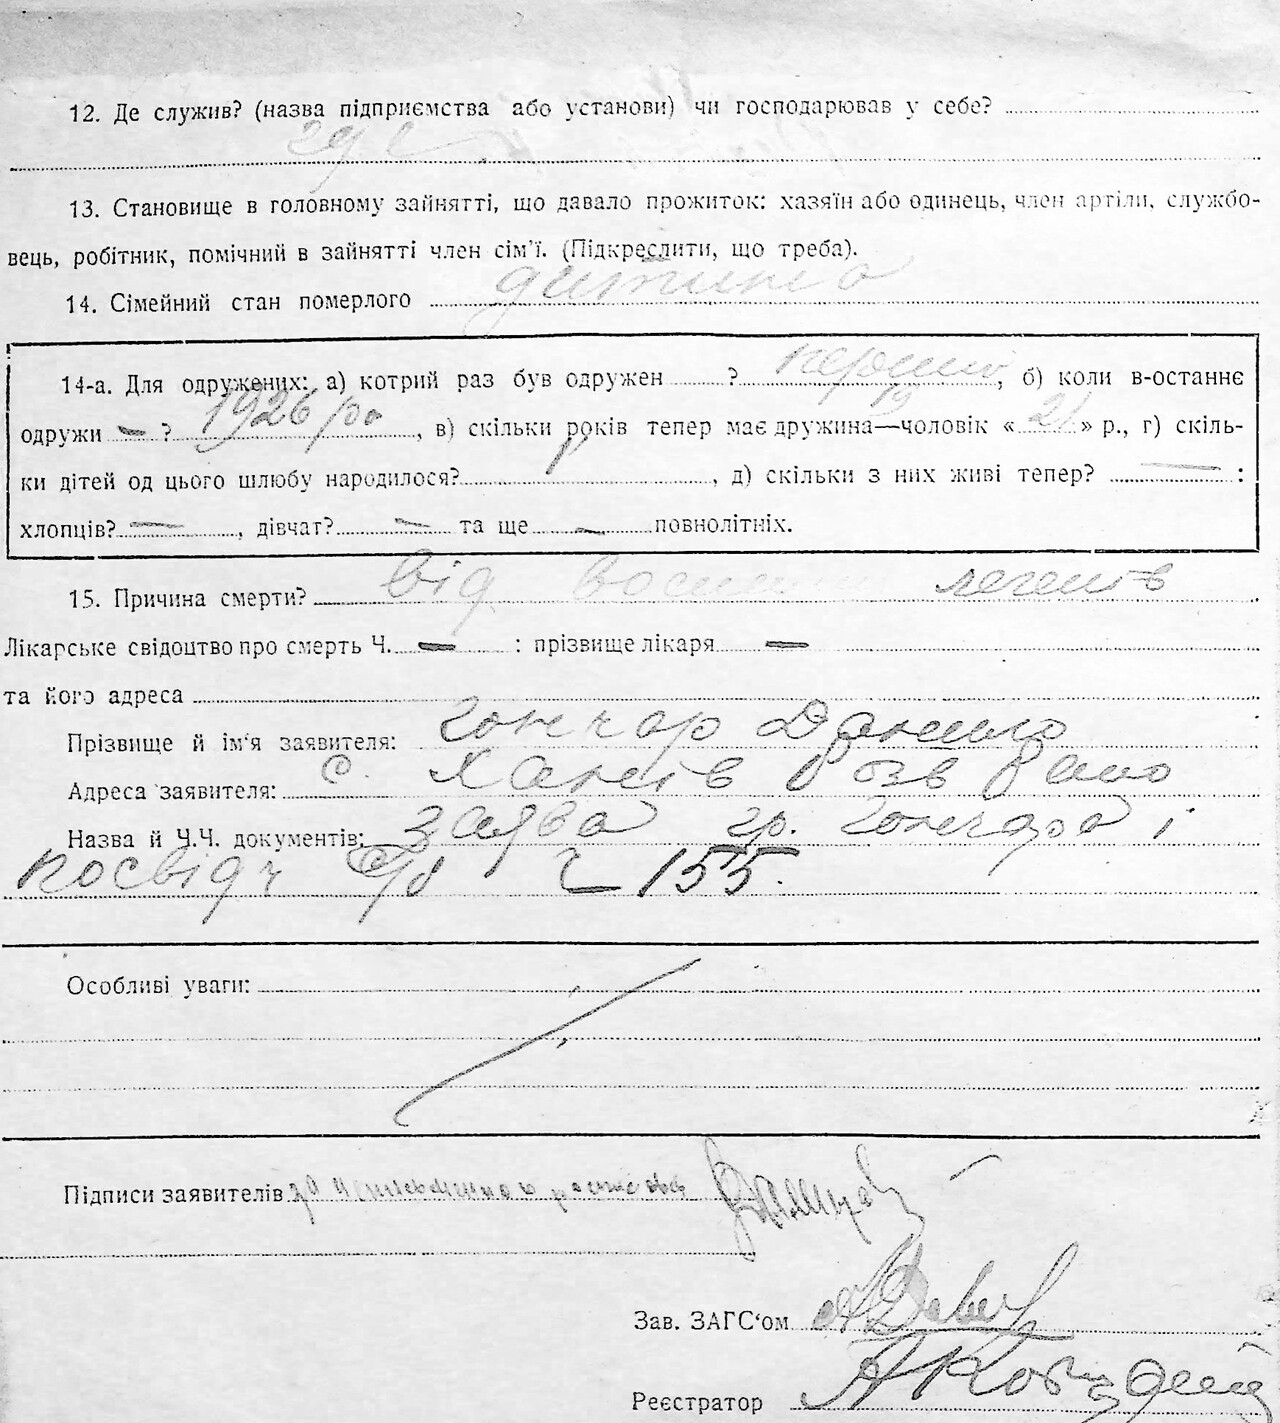 12. Де служив? (назва підприємства або установи) чи господарював у себе?
13. Становище в головному зайнятті, що давало прожиток: хазяїн або одинець, член артіли, службо-
вець, робітник, помічний в зайнятті член сім'ї. (Підкреслити, що треба).
14. Сімейний стан померлого дитина
14-а. Для одружених: а) котрий раз був одружен ? перший, б) коли в-останнє
одружи — ? 1926 ро , в) скільки років тепер має дружина—чоловік « 21 » р., г) скіль-
ки дітей од цього шлюбу народилося? , д) скільки з них живі тепер? — :
хлопців? — , дівчат? — та ще — повнолітніх.
15. Причина смерти? від легенів
Лікарське свідоцтво про смерть Ч. — : прізвище лікаря —
та його адреса
Прізвище й ім'я заявителя: Гончар Данило
Адреса заявителя: с. Ханів
Назва й Ч.Ч. документів: Заява гр. Гончара і
посвідч с/р Ч 155.
Особливі уваги:
Підписи заявителів за
Зав. ЗАГС'ом
Реєстратор